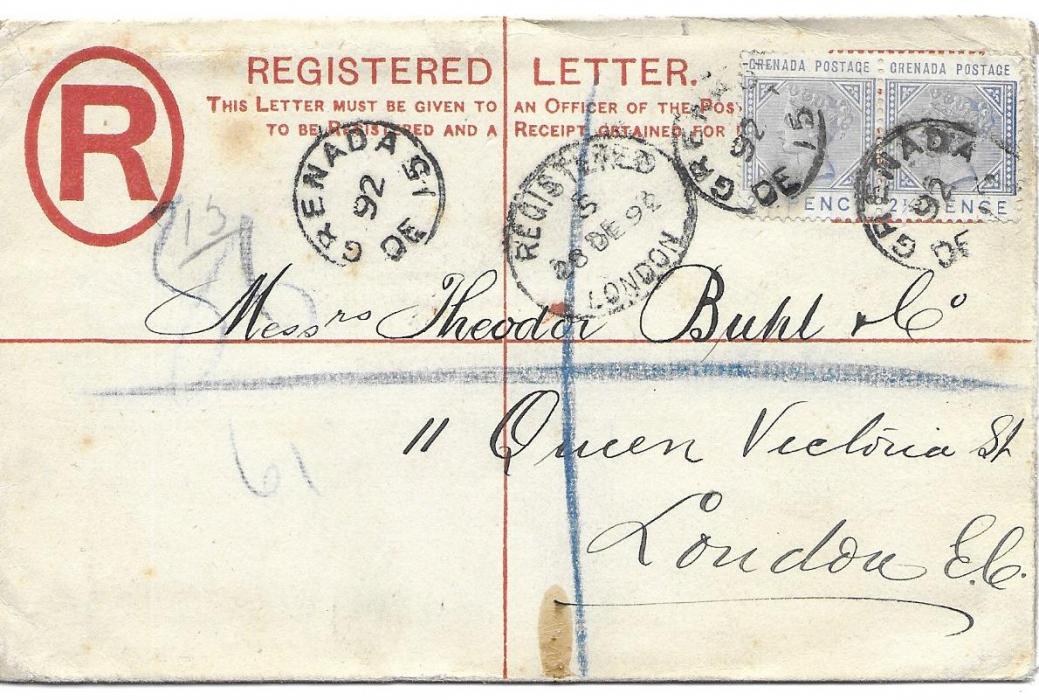 R
REGISTERED LETTER.
THIS LETTER MUST BE GIVEN TO AN OFFICER OF THE POS
TO BE REGISTERED AND A RECEIPT OBTAINED FOR
GRENADA POSTAGE GRENADA POSTAGE
ENC 2½ ENSE
GRENADA
92
DE 15
REGISTERED
S
28 DE 92
LONDON
GRENADA
92
DE 15
GRENADA
92
DE
13
61
Messrs Theodor Buhl & Co
11 Queen Victoria St
London E.C.